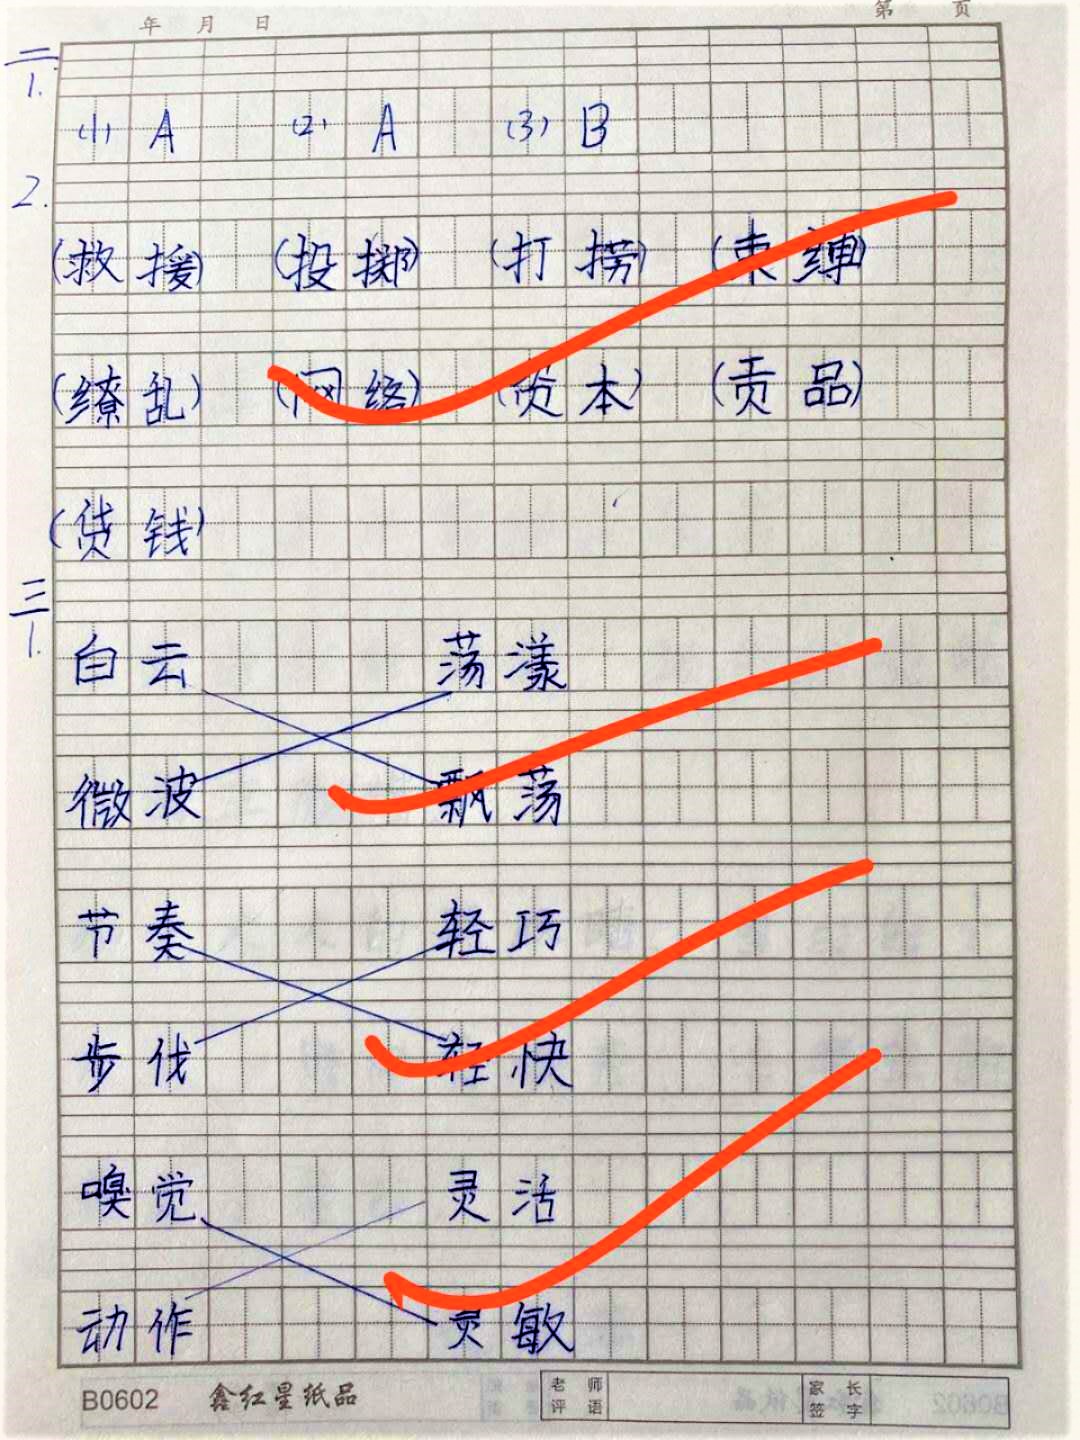 年 月 日 第 页
二
1.
(1) A (2) A (3) B
2.
(救援) (投掷) (打捞) (束缚)
(缭乱) (网络) (资本) (贡品)
(贷钱)
三
1.
白云 荡漾
微波 飘荡
节奏 轻巧
步伐 轻快
嗅觉 灵活
动作 灵敏
B0602 鑫红星纸品 老师评语 家长签字